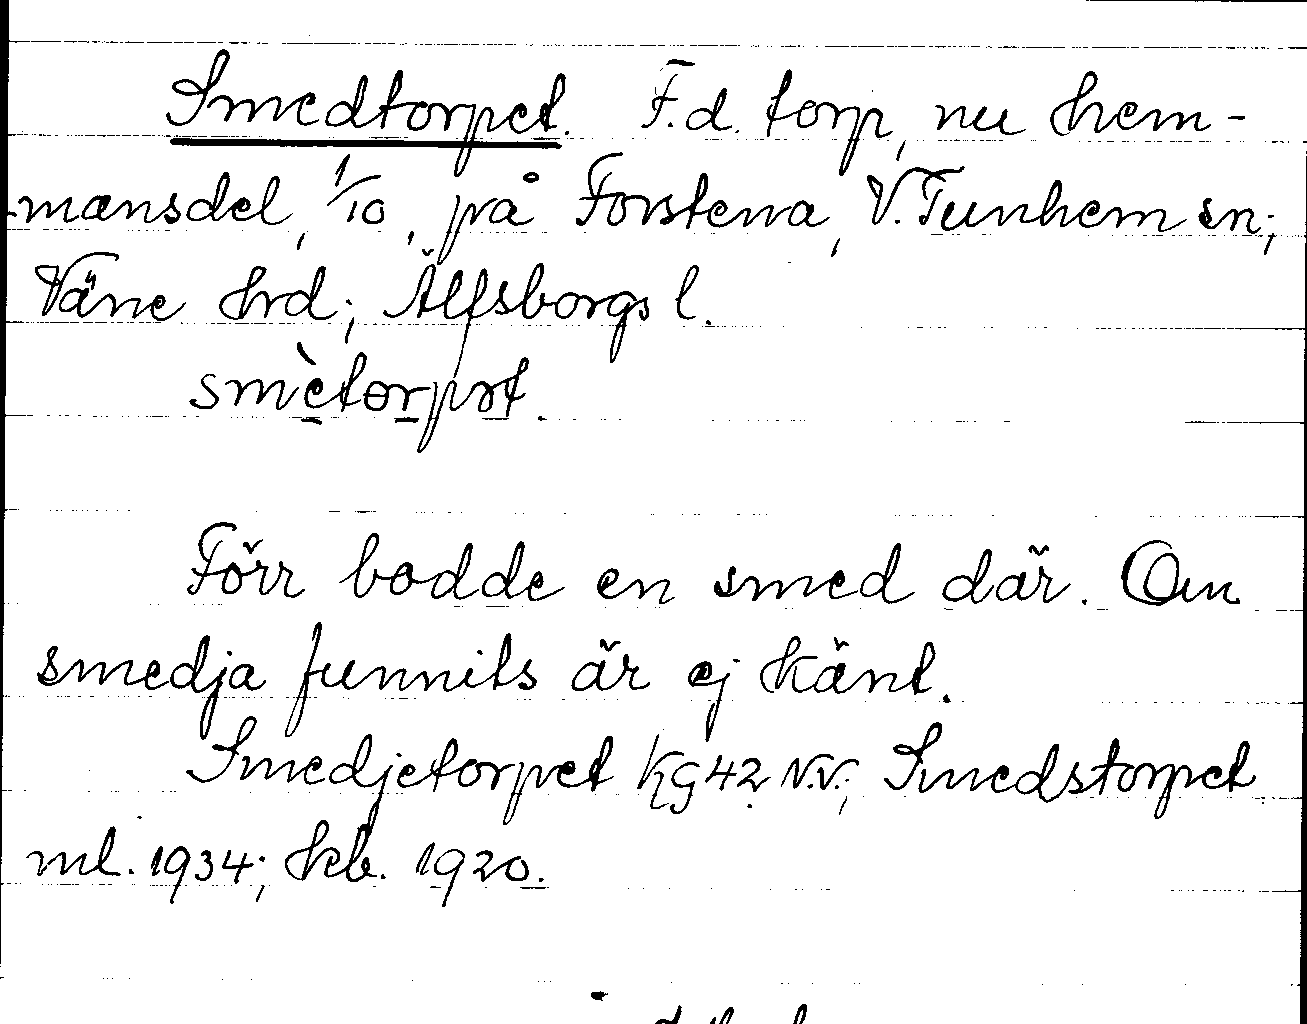 Smedtorpet. F.d. torp, nu hem-
mansdel, 1/10, på Forstena, V. Tunhem sn;
Väne hrd; Älfsborgs l.
smètorpət.
Förr bodde en smed där. Om
smedja funnits är ej känt.
Smedjetorpet Kg 42 N.V.; Smedstorpet
ml. 1934; kb. 1920.